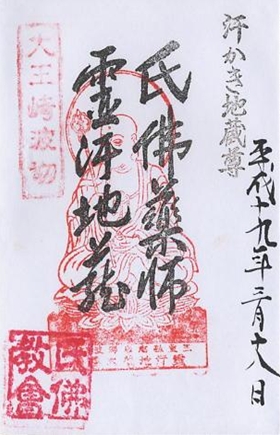 汗かき地蔵尊
平成十九年三月十八日
氏佛薬師
霊汗地蔵
大王崎波切
氏佛
教會